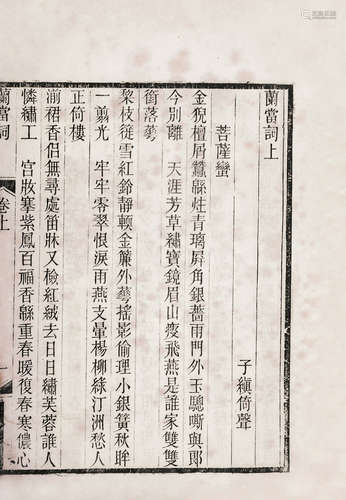 蘭當詞上
子縝倚聲
菩薩蠻
金猊檀屑蠶緜炷青璃屏角銀薔雨門外玉驄嘶與郎
今別離　天涯芳草繡寶鏡眉山瘦飛燕是誰家雙雙
銜落蕐
棃枝徙雪紅鈴靜頓金簾外蕐搖影偷理小銀簧秋眸
一翦光　牢牢零翠恨淚雨燕支暈楊柳綠汀洲愁人
正倚樓
湔裙香侶無尋處笛牀又檢紅絨去日日繡芙蓉誰人
憐繡工　宮妝搴紫鳳百福香緜重春暖復春寒儂心
蘭當詞　卷上　一